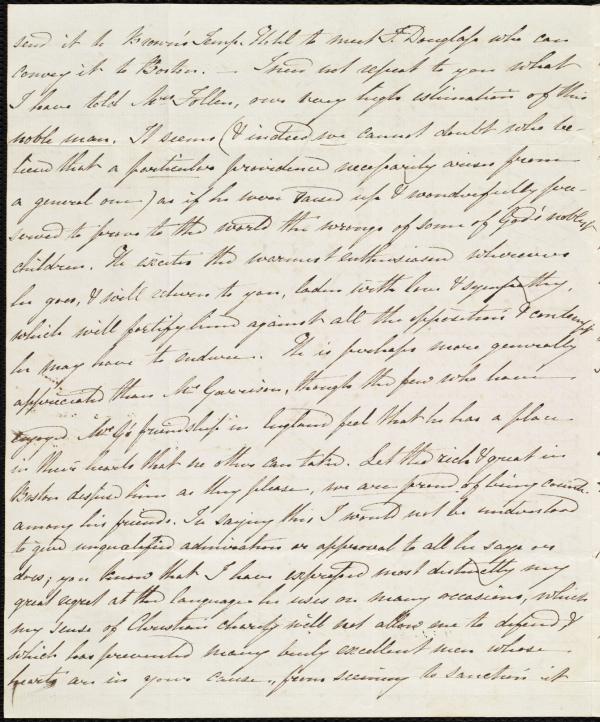 send it to Brown's Temp. Hotel to meet F. Douglass who can
convey it to Boston. — I need not repeat to you what
I have told Mrs Follen, our very high estimation of this
noble man. It seems (& indeed we cannot doubt who be-
lieve that a particular providence necessarily arises from
a general one) as if he were raised up & wonderfully pre-
served to prove to the world the wrongs of some of God's noblest
children. He excites the warmest enthusiasm wherever
he goes, & will return to you, laden with love & sympathy,
which will fortify him against all the opposition & contempt
he may have to endure. He is perhaps more generally
appreciated than Mr Garrison, though the few who have
enjoyed Mr G's friendship in England feel that he has a place
in their hearts that no other can take. Let the rich & great in
Boston despise him as they please, we are proud of being counted
among his friends. In saying this I would not be understood
to give unqualified admiration or approval to all he says or
does; you know that I have expressed most distinctly my
great regret at the language he uses on many occasions, which
my sense of Christian charity will not allow me to defend &
which has prevented many truly excellent men whose
hearts are in your cause, from seeming to sanction it